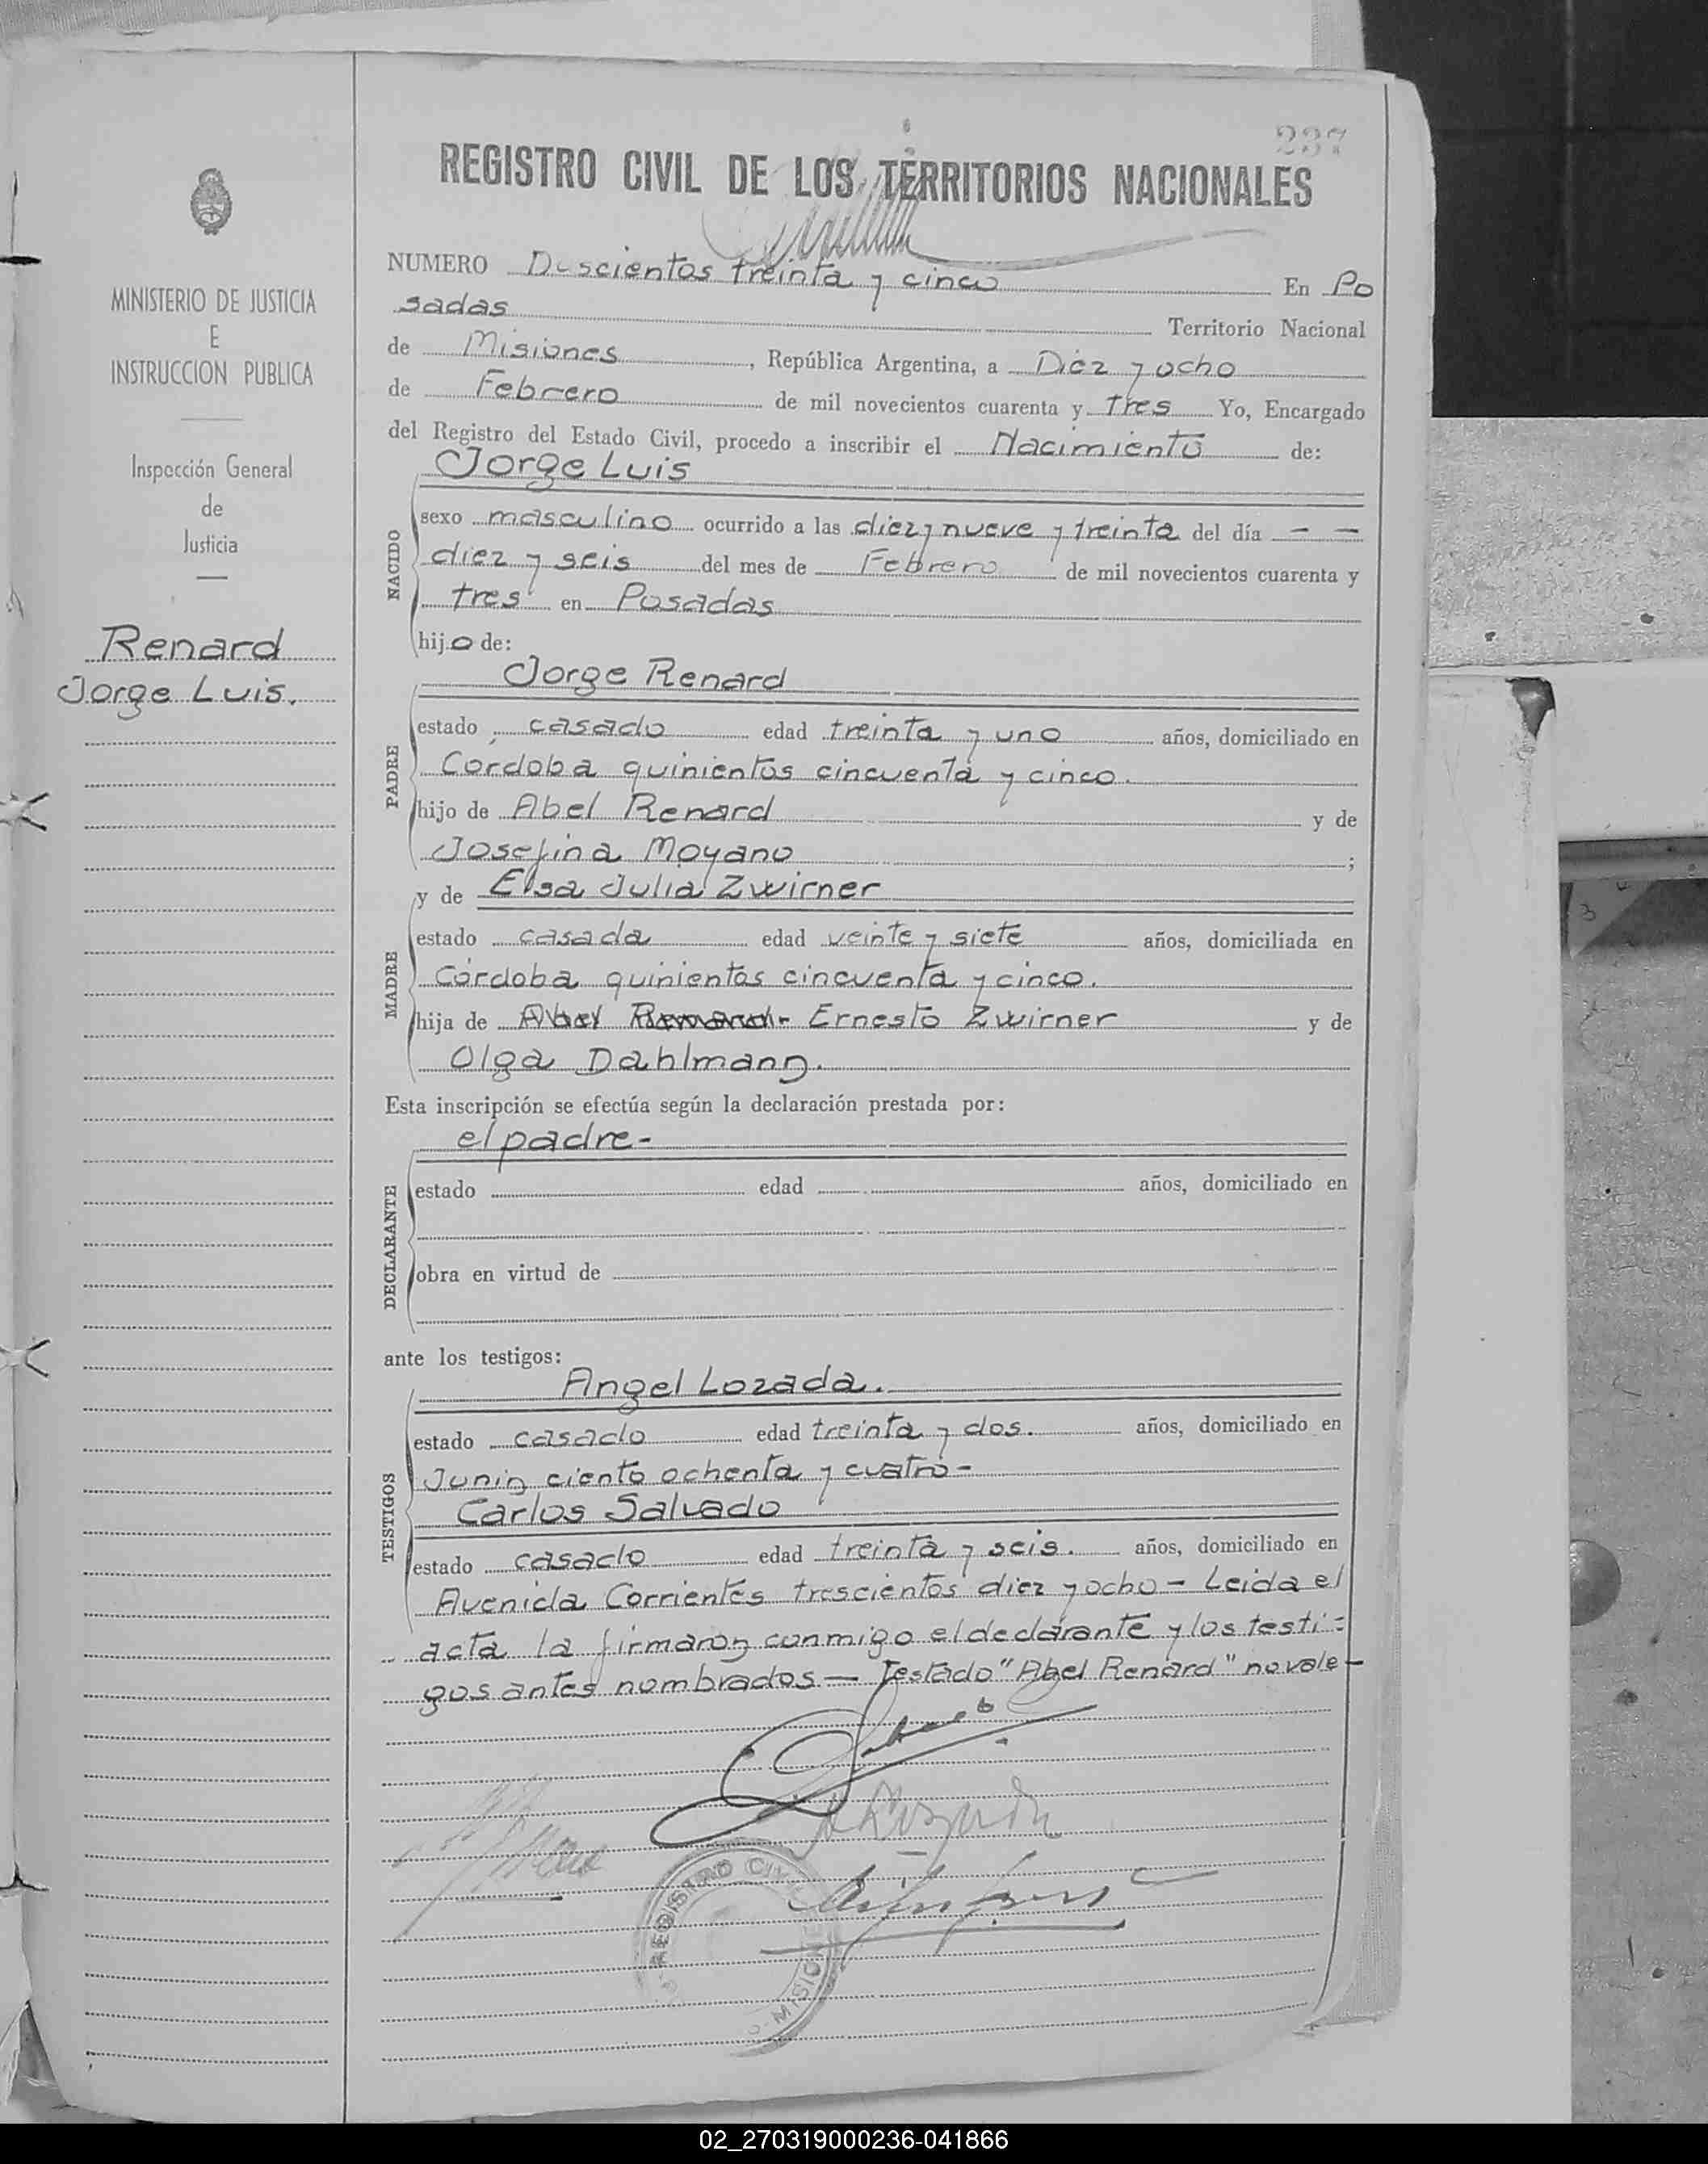 237
REGISTRO CIVIL DE LOS TERRITORIOS NACIONALES
MINISTERIO DE JUSTICIA
E
INSTRUCCION PUBLICA
Inspección General
de
Justicia
Renard
Jorge Luis.
NUMERO Duscientos treinta y cinco En Po
sadas Territorio Nacional
de Misiones, República Argentina, a Diez y ocho
de Febrero de mil novecientos cuarenta y tres Yo, Encargado
del Registro del Estado Civil, procedo a inscribir el Nacimiento de:
Jorge Luis
NACIDO
sexo masculino ocurrido a las diez y nueve y treinta del día - -
diez y seis del mes de Febrero de mil novecientos cuarenta y
tres en Posadas
hijo de:
Jorge Renard
PADRE
estado casado edad treinta y uno años, domiciliado en
Córdoba quinientos cincuenta y cinco.
hijo de Abel Renard y de
Josefina Moyano ;
y de Elsa Julia Zwirner
MADRE
estado casada edad veinte y siete años, domiciliada en
Córdoba quinientos cincuenta y cinco.
hija de Abel Renard - Ernesto Zwirner y de
Olga Dahlmann.
Esta inscripción se efectúa según la declaración prestada por:
el padre-
DECLARANTE
estado edad años, domiciliado en
obra en virtud de
ante los testigos:
Angel Lozada.
TESTIGOS
estado casado edad treinta y dos. años, domiciliado en
Junin ciento ochenta y cuatro-
Carlos Salvado
estado casado edad treinta y seis. años, domiciliado en
Avenida Corrientes trescientos diez y ocho - Leida el
acta la firmaron conmigo el declarante y los testi=
gos antes nombrados — Testado "Abel Renard" no vale-
REGISTRO CIVIL
MISIONES
02_270319000236-041866